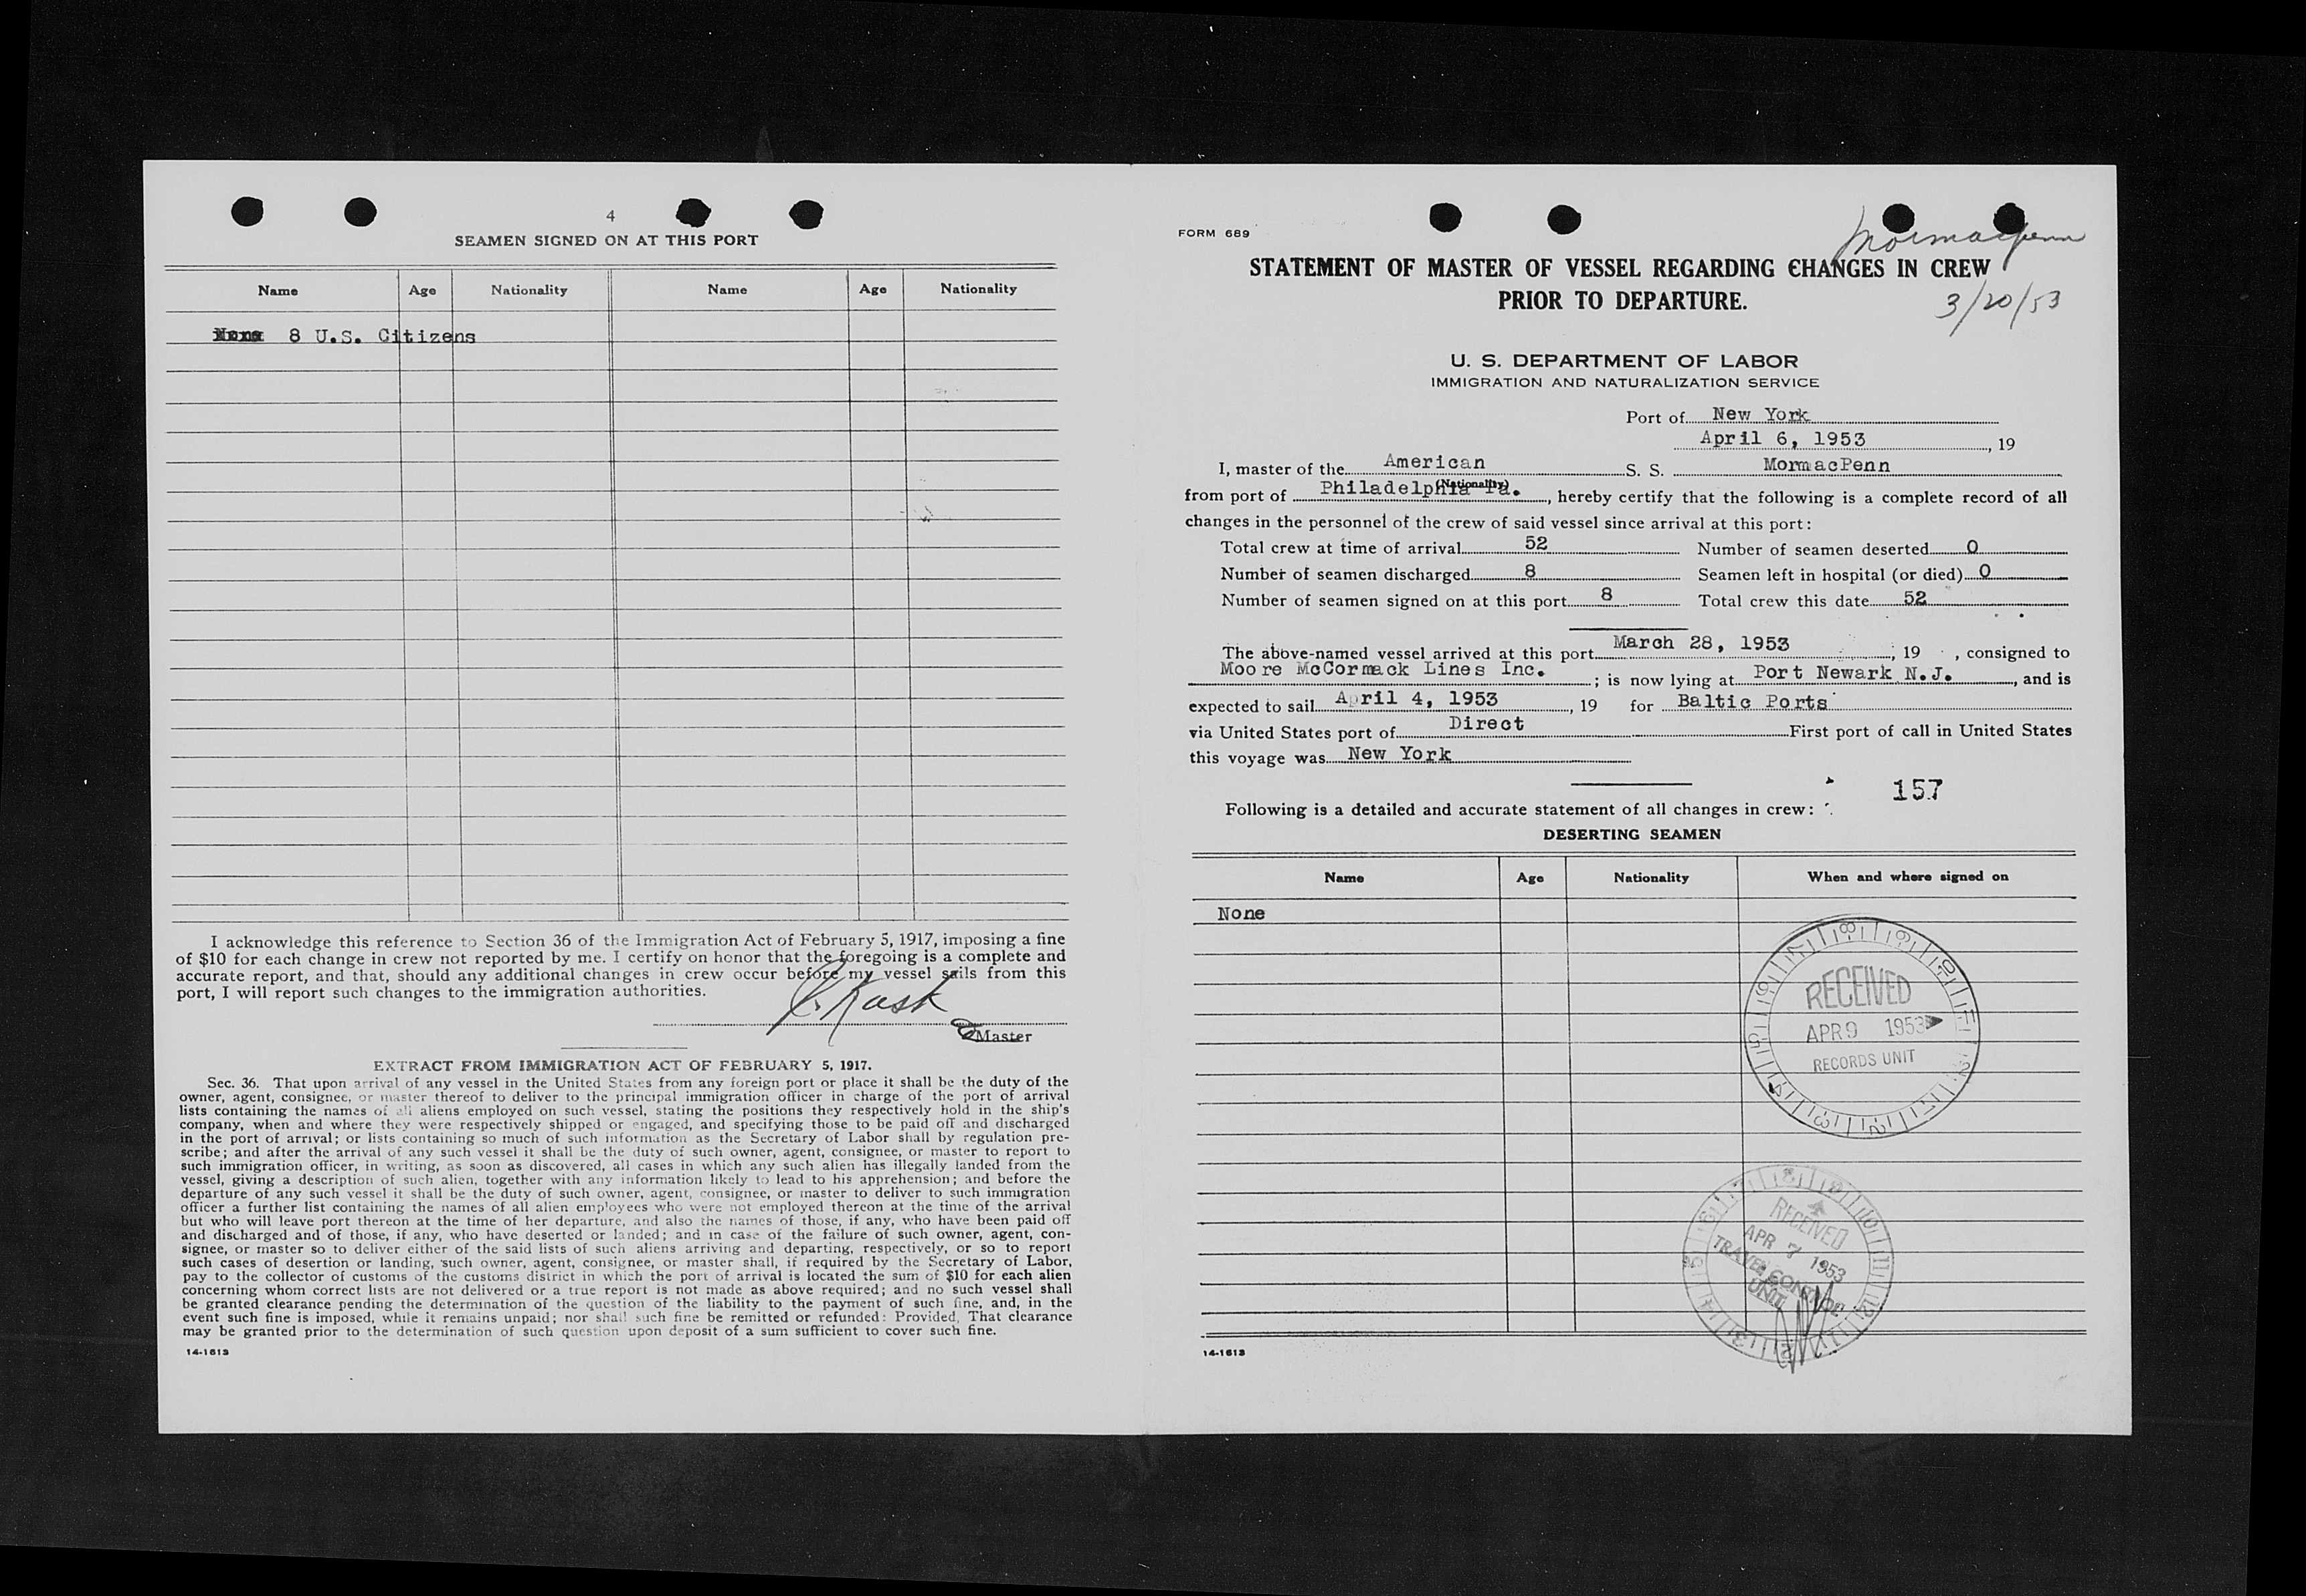 4
SEAMEN SIGNED ON AT THIS PORT
Name Age Nationality Name Age Nationality
None 8 U.S. Citizens
I acknowledge this reference to Section 36 of the Immigration Act of February 5, 1917, imposing a fine
of $10 for each change in crew not reported by me. I certify on honor that the foregoing is a complete and
accurate report, and that, should any additional changes in crew occur before my vessel sails from this
port, I will report such changes to the immigration authorities.
Kask
Master
EXTRACT FROM IMMIGRATION ACT OF FEBRUARY 5, 1917.
Sec. 36. That upon arrival of any vessel in the United States from any foreign port or place it shall be the duty of the
owner, agent, consignee, or master thereof to deliver to the principal immigration officer in charge of the port of arrival
lists containing the names of all aliens employed on such vessel, stating the positions they respectively hold in the ship's
company, when and where they were respectively shipped or engaged, and specifying those to be paid off and discharged
in the port of arrival; or lists containing so much of such information as the Secretary of Labor shall by regulation pre-
scribe; and after the arrival of any such vessel it shall be the duty of such owner, agent, consignee, or master to report to
such immigration officer, in writing, as soon as discovered, all cases in which any such alien has illegally landed from the
vessel, giving a description of such alien, together with any information likely to lead to his apprehension; and before the
departure of any such vessel it shall be the duty of such owner, agent, consignee, or master to deliver to such immigration
officer a further list containing the names of all alien employees who were not employed thereon at the time of the arrival
but who will leave port thereon at the time of her departure, and also the names of those, if any, who have been paid off
and discharged and of those, if any, who have deserted or landed; and in case of the failure of such owner, agent, con-
signee, or master so to deliver either of the said lists of such aliens arriving and departing, respectively, or so to report
such cases of desertion or landing, such owner, agent, consignee, or master shall, if required by the Secretary of Labor,
pay to the collector of customs of the customs district in which the port of arrival is located the sum of $10 for each alien
concerning whom correct lists are not delivered or a true report is not made as above required; and no such vessel shall
be granted clearance pending the determination of the question of the liability to the payment of such fine, and, in the
event such fine is imposed, while it remains unpaid; nor shall such fine be remitted or refunded: Provided, That clearance
may be granted prior to the determination of such question upon deposit of a sum sufficient to cover such fine.
14-1613
FORM 689
Mormacpenn
STATEMENT OF MASTER OF VESSEL REGARDING CHANGES IN CREW
PRIOR TO DEPARTURE.
3/20/53
U. S. DEPARTMENT OF LABOR
IMMIGRATION AND NATURALIZATION SERVICE
Port of New York
April 6, 1953, 19
I, master of the American S. S. MormacPenn
(Nationality)
from port of Philadelphia Pa., hereby certify that the following is a complete record of all
changes in the personnel of the crew of said vessel since arrival at this port:
Total crew at time of arrival 52 Number of seamen deserted 0
Number of seamen discharged 8 Seamen left in hospital (or died) 0
Number of seamen signed on at this port 8 Total crew this date 52
The above-named vessel arrived at this port March 28, 1953, 19 , consigned to
Moore McCormack Lines Inc. ; is now lying at Port Newark N.J., and is
expected to sail April 4, 1953, 19 for Baltic Ports
via United States port of Direct First port of call in United States
this voyage was New York
157
Following is a detailed and accurate statement of all changes in crew:
DESERTING SEAMEN
Name Age Nationality When and where signed on
None
RECEIVED
APR 9 1953
RECORDS UNIT
RECEIVED
APR 7 1953
TRAVEL CONTROL
UNIT
14-1613